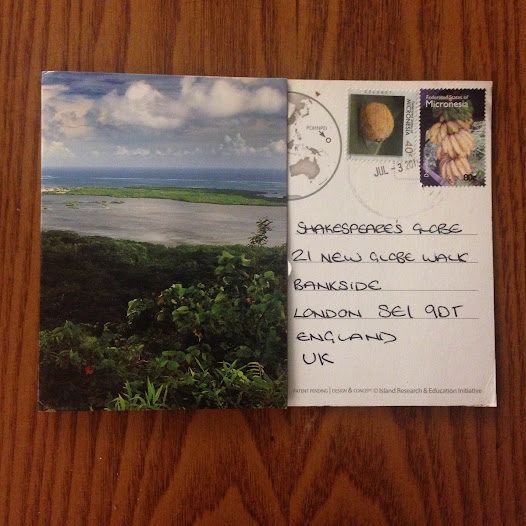 POHNPEI
MICRONESIA
40
Federated States of
Micronesia
80c
JUL - 3 201
SHAKESPEARE'S GLOBE
21 NEW GLOBE WALK
BANKSIDE
LONDON SE1 9DT
ENGLAND
UK
PATENT PENDING | DESIGN & CONCEPT © Island Research & Education Initiative